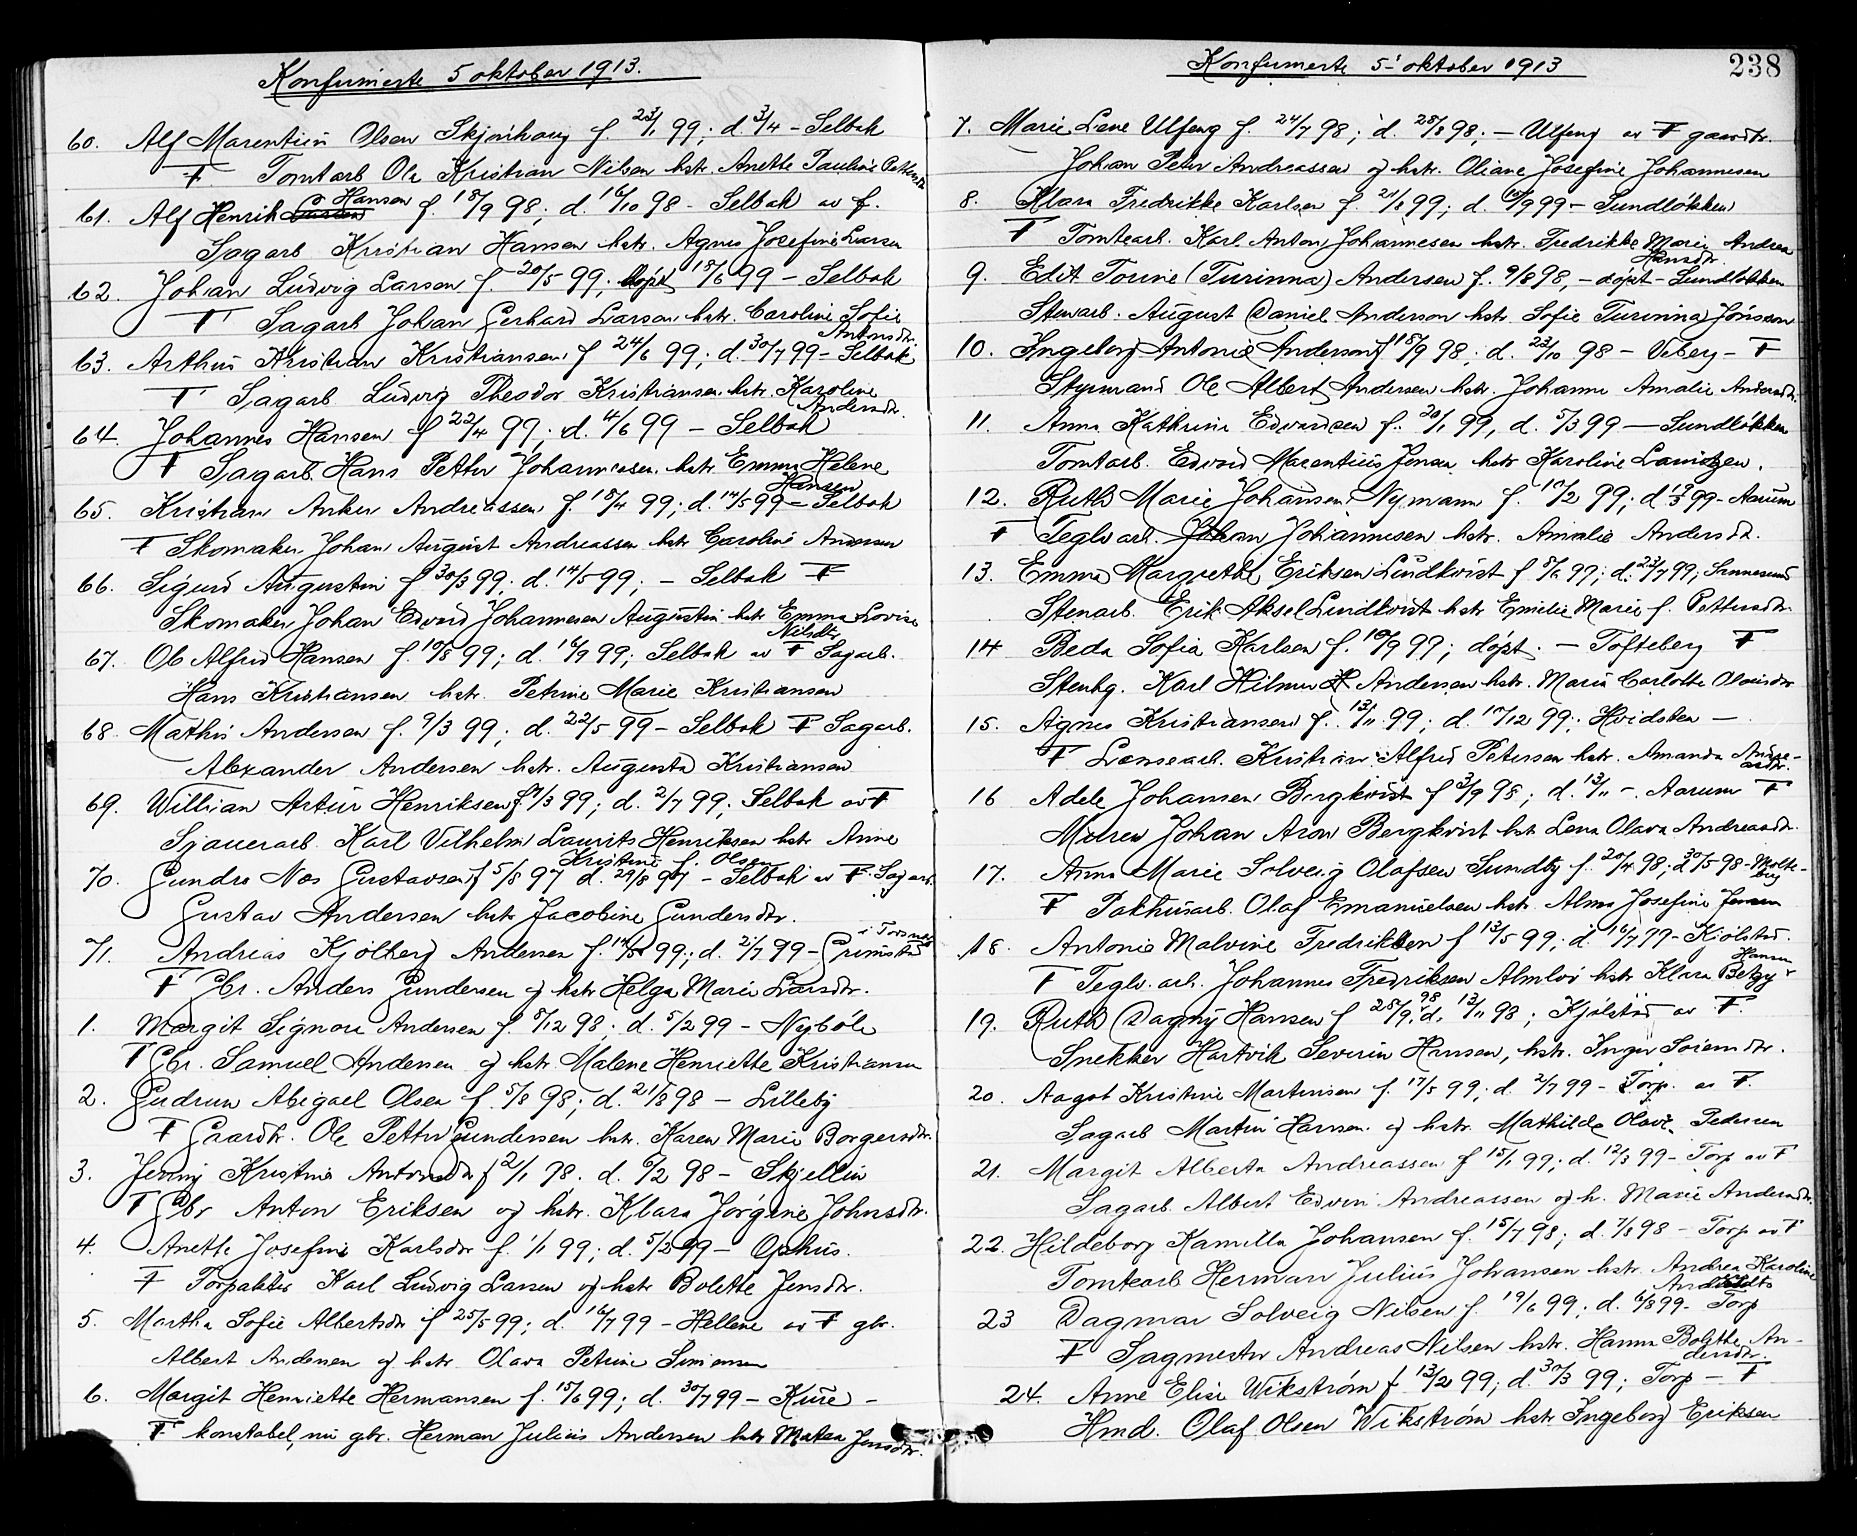 Konfirmerte 5 oktober 1913.
60. Alf Marentius Olsen Skjønhaug f. 23/1 99; d. 3/4 - Selbak
F Tomtarb Ole Kristian Nilsen hstr. Anette Pauline
61. Alf Henrik Hansen f. 18/9 98; d. 16/10 98 - Selbak av f.
Sagarb Kristian Hansen hstr. Agnes Josefine Larsen
62. Johan Ludvig Larsen f. 20/5 99; døpt 18/6 99 - Selbak
F Sagarb Johan Gerhard Larsen hstr. Caroline Sofie
Antonsdtr.
63. Arthur Kristian Kristiansen f 24/6 99; d. 30/7 99 - Selbak
F Sagarb Ludvig Theodor Kristiansen hstr. Karoline
Andersdtr.
64. Johannes Hansen f 22/4 99; d. 4/6 99 - Selbak
F Sagarb. Hans Petter Johannesen hstr Emma Helene
Hansen
65. Kristian Anker Andreassen f 18/4 99; d. 14/5 99 - Selbak
F Skomaker Johan August Andreassen hstr Caroline Andersen
66. Sigurd Augustin f 30/3 99; d. 14/5 99; - Selbak F
Skomaker Johan Edvard Johannesen Augustin hstr Emma Lovise
Nilsdtr
67. Ole Alfred Hansen f. 10/8 99; d. 16/9 99; Selbak av F Sagarb.
Hans Kristiansen hstr. Petrine Marie Kristiansen
68. Mathis Andersen f. 9/3 99; d. 22/5 99 - Selbak F Sagarb.
Alexander Andersen hstr. Augusta Kristiansen
69. Willian Artur Henriksen f /3 99; d. 2/7 99; Selbak av F
Sjauerarb. Karl Vilhelm Laurits Henriksen hstr Anne
Kristine f. Olsen
70. Gundro Nos Gustavsen f 5/8 97 d. 29/8 97 - Selbak av F. Sagarb.
Gustav Andersen hstr Jacobine Gundersdtr.
i Torsnes
71. Andreas Kjølberg Andersen f. 14/5 99; d. 2/7 99 - Grimstad
F Gbr. Anders Gundersen og hstr Helga Marie Larsdtr.
1. Margit Signora Andersen f. 8/12 98; d. 5/2 99 - Nybøle
F Gbr. Samuel Andersen og hstr Malene Henriette Kristiansen
2. Gudrun Abigael Olsen f. 5/8 98; d. 21/8 98 - Lilleby
F Gaardbr. Ole Petter Gundersen hstr. Karen Marie Borgersdtr.
3. Jenny Kristine Antonsdtr f 2/1 98. d. 9/2 98 - Skjellin
F Gbr Anton Eriksen og hstr. Klara Jørgine Johnsdtr.
4. Anette Josefine Karlsdtr f. 1/1 99; d. 5/2 99 - Ophus.
F Forpakter Karl Ludvig Larsen og hstr Bolette Jensdtr.
5. Martha Sofie Albertsdtr f 25/5 99; d. 16/7 99 - Hellene av F gbr.
Albert Andersen og hstr. Olava Petrine Simensen
6. Margit Henriette Hermansen f. 15/6 99; d. 30/7 99 - Kure -
F konstabel, nu gbr. Herman Julius Andersen hstr Matea Jensdtr.
Konfirmerte 5' oktober 1913
238
7. Marie Lene Ulfeng f. 24/7 98; d. 28/8 98; - Ulfeng av F gaardbr.
Johan Peter Andreassen og hstr. Oliane Josefine Johannesen
8. Klara Fredrikke Karlsen f. 21/6 99; d. 10/9 99 - Sundløkken
F Tomtearb. Karl Anton Johannesen hstr. Fredrikke Marie Andrea
Hansdtr.
9. Edit Tourine (Turinna) Andersen f. 9/8 98, - døpt - Sundløkken
Stenarb. August Daniel Anderson hstr. Sofie Turinna Jönsson
10. Ingeborg Antonie Anderson f 18/9 98; d. 23/10 98 - Veberg - F
Styrmand Ole Albert Andersen hstr. Johanne Amalie Andersdtr.
11. Anna Kathrine Edvardsen f. 20/1 99, d. 5/3 99 - Sundløkken
Tomtarb. Edvard Marentius Jensen hstr Karoline Lauritzen.
12. Ruth Marie Johansen Nymann f. 17/2 99; d 19/3 99 - Aarum
F Teglv arb. Johan Johannesen hstr. Amalie Andersdtr.
13. Emma Margrethe Eriksen Lundkvist f 8/6 99; d. 23/7 99; Sannesund
Stenarb. Erik Aksel Lundkvist hstr Emilie Marie f. Pettersdtr.
14 Beda Sofia Karlsen f. 10/9 99; døpt. - Tofteberg F
Stenhg. Karl Hilmer Andersen hstr. Maria Carlotta Olausdtr
15. Agnes Kristiansen f. 13/11 99; d. 17/12 99; Hvidsten -
F Lænsearb. Kristian Alfred Petersen hstr. Amanda Andre-
asdtr.
16 Adele Johansen Bergkvist f 3/9 98; d. 13/11 -. Aarum F
Murer Johan Aron Bergkvist hst Lena Olava Andreasdtr.
17. Anna Marie Solveig Olafsen Sundby f. 20/4 98; d 30/5 98 - Molte-
berg
F Pakhusarb. Olaf Emanuelsen hstr. Alma Josefine Jensen
18. Antonie Malvine Fredriksen f 13/5 99; d. 16/7 99 - Kjølstad.
Hansen
F Teglv. arb. Johannes Fredriksen Almlöv hstr Klara Betzy
19. Ruth Dagny Hansen f 28/9 98 d. 13/11 98; Kjølstad av F.
Snekker Hartvik Severin Hansen, hstr. Inger Sørensdtr.
20. Aagot Kristine Martinsen f. 17/5 99; d 2/7 99 - Torp. av F.
Sagarb Martin Hansen og hstr. Mathilde Olave Pedersen
21. Margit Alberta Andreassen f 15/1 99; d. 12/3 99 - Torp av F
Sagarb. Albert Edvin Andreassen og h. Marie Andersdtr.
22. Hildeborg Kamilla Johansen f. 15/7 98; d. 7/8 98 - Torp av F
Tomtearb Herman Julius Johansen hstr. Andrea Karoline
23 Dagmar Solveig Nilsen f. 19/6 99; d. 6/8 99 - Torp
F Sagmester Andreas Nilsen hstr. Hanna Bolette An-
dersdtr.
24. Anne Elise Wikstrøm f 13/2 99; d. 30/3 99; Torp - F
Hmd. Olaf Olsen Wikstrøm hstr Ingeborg Eriksen